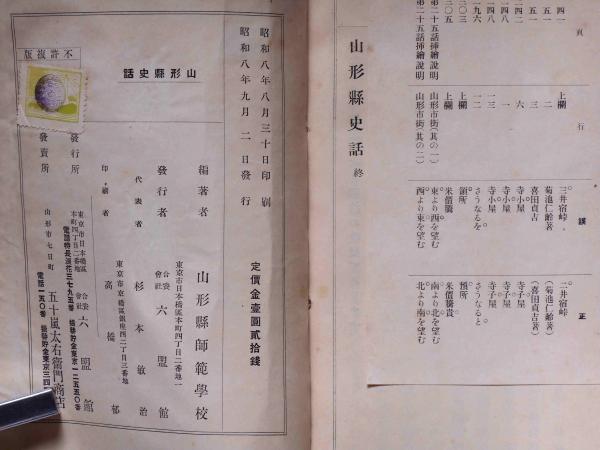 頁
行
誤
正
四一
上欄
三井宿峠
二井宿峠
五一
二
菊池仁齢著
(菊池仁齢著)
五一
三
喜田貞吉
(喜田貞吉著)
四二
六
寺小屋
寺子屋
四八
一
寺小屋
寺子屋
四八
一三
寺小屋
寺子屋
九六
一一
さうなるを
さうなると
〇三
上欄
領所
預所
〇五
上欄
米價騰
米價騰貴
第二十五話挿繪說明
山形市街(其の一)
東より西を望む
南より北を望む
第二十五話挿繪說明
山形市街(其の二)
西より東を望む
北より南を望む
山形縣史話 終
定價金壹圓貳拾錢
昭和八年八月三十日印刷
昭和八年九月 二日發行
山形縣史話
不許複版
編著者 山形縣師範學校
東京市日本橋區本町四丁目二番地一
發行者 合資會社 六盟館
代表者 杉本敏治
東京市京橋區銀座西二丁目三番地
印刷者 高橋郁
發行所
東京市日本橋區本町四丁目二番地
合資會社 六盟館
電話特長浪花三七九五番 振替貯金東京一二五五〇番
發賣所
山形市七日町
五十嵐太右衞門商店
電話一五〇番 振替貯金東京三四